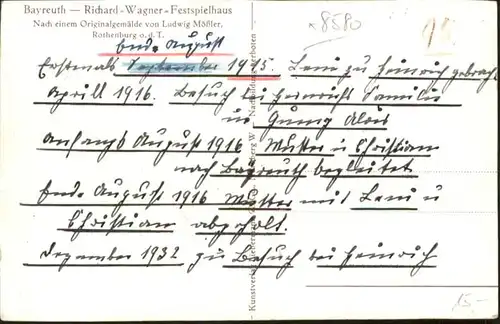 Bayreuth — Richard-Wagner-Festspielhaus
Nach einem Originalgemälde von Ludwig Mößler,
Rothenburg o. d. T.
x 8580
Ende August
Erstmals September 1915. Leni zu Heinrich gebracht
Aprill 1916. Besuch bei Heinrichs Familie
u Alois
anfangs August 1916 Mutter u Christian
nach Bayreuth begleitet
Ende August 1916 Mutter mit Leni u
Christian abgeholt.
Dezember 1932 zu Besuch bei Heinrich
15.-